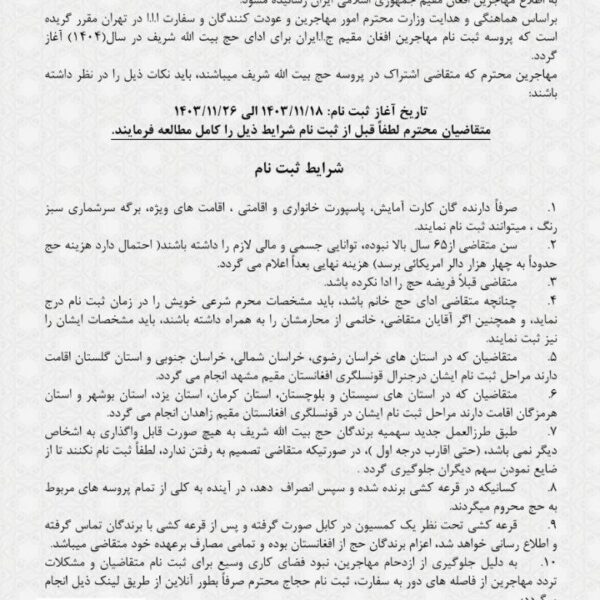 به اطلاع مهاجرین افغان مقیم جمهوری اسلامی ایران رسانیده میشود.
براساس هماهنگی و هدایت وزارت محترم امور مهاجرین و عودت کنندگان و سفارت ا.ا.ا در تهران مقرر گریده
است که پروسه ثبت نام مهاجرین افغان مقیم ج.ا.ایران برای ادای حج بیت الله شریف در سال(۱۴۰۴) آغاز
گردد.
مهاجرین محترم که متقاضی اشتراک در پروسه حج بیت الله شریف میباشند، باید نکات ذیل را در نظر داشته
باشند:
تاریخ آغاز ثبت نام: ۱۴۰۳/۱۱/۱۸ الی ۱۴۰۳/۱۱/۲۶
متقاضیان محترم لطفاً قبل از ثبت نام شرایط ذیل را کامل مطالعه فرمایند.
شرایط ثبت نام
۱. صرفاً دارنده گان کارت آمایش، پاسپورت خانواری و اقامتی ، اقامت های ویژه، برگه سرشماری سبز
رنگ ، میتوانند ثبت نام نمایند.
۲. سن متقاضی از۶۵ سال بالا نبوده، توانایی جسمی و مالی لازم را داشته باشند( احتمال دارد هزینه حج
حدوداً به چهار هزار دالر امریکائی برسد) هزینه نهایی بعداً اعلام می گردد.
۳. متقاضی قبلاً فریضه حج را ادا نکرده باشد.
۴. چنانچه متقاضی ادای حج خانم باشد، باید مشخصات محرم شرعی خویش را در زمان ثبت نام درج
نماید، و همچنین اگر آقایان متقاضی، خانمی از محارمشان را به همراه داشته باشند، باید مشخصات ایشان را
نیز ثبت نمایند.
۵. متقاضیان که در استان های خراسان رضوی، خراسان شمالی، خراسان جنوبی و استان گلستان اقامت
دارند مراحل ثبت نام ایشان درجنرال قونسلگری افغانستان مقیم مشهد انجام می گردد.
۶. متقاضیان که در استان های سیستان و بلوچستان، استان کرمان، استان یزد، استان بوشهر و استان
هرمزگان اقامت دارند مراحل ثبت نام ایشان در قونسلگری افغانستان مقیم زاهدان انجام می گردد.
۷. طبق طرزالعمل جدید سهمیه برندگان حج بیت الله شریف به هیچ صورت قابل واگذاری به اشخاص
دیگر نمی باشد، (حتی اقارب درجه اول )، در صورتیکه متقاضی تصمیم به رفتن ندارد، لطفاً ثبت نام نکنند تا از
ضایع نمودن سهم دیگران جلوگیری گردد .
۸. کسانیکه در قرعه کشی برنده شده و سپس انصراف دهد، در آینده به کلی از تمام پروسه های مربوط
به حج محروم میگردند.
۹. قرعه کشی تحت نظر یک کمسیون در کابل صورت گرفته و پس از قرعه کشی با برندگان تماس گرفته
و اطلاع رسانی خواهد شد، اعزام برندگان حج از افغانستان بوده و تمامی مصارف برعهده خود متقاضی میباشد.
۱۰. به دلیل جلوگیری از ازدحام مهاجرین، نبود فضای کاری وسیع برای ثبت نام متقاضیان و مشکلات
تردد مهاجرین از فاصله های دور به سفارت، ثبت نام حجاج محترم صرفاً بطور آنلاین از طریق لینک ذیل انجام